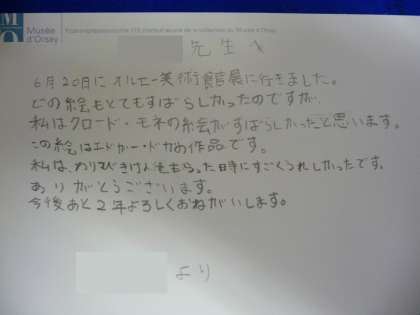 MO
Musée
d'Orsay
先生へ
6月20日にオルセー美術館展に行きました。
どの絵もとてもすばらしかったのですが、
私はクロード・モネの絵がすばらしかったと思います。
この絵はエドガー・ドガの作品です。
私は、わりびきけんをもらった時にすごくうれしかったです。
ありがとうございます。
今後あと2年よろしくおねがいします。
より